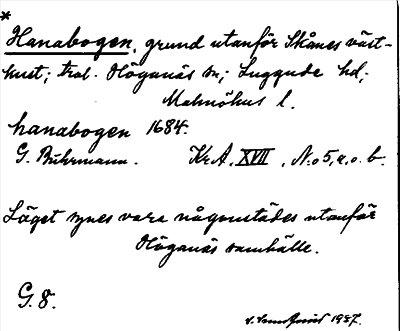 *
Hanabogen, grund utanför Skånes väst-
kust; trol. Höganäs sn; Luggude hd,
Malmöhus l.
hanabogen 1684.
G. Buhrmann. Kr A, XVII, No 5, a. o. b.
Läget synes vara någonstädes utanför
Höganäs samhälle.
G. 8.
1937.